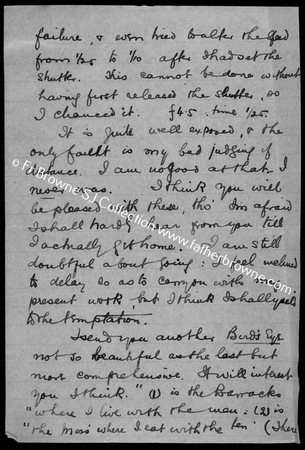 failure, & even tried to alter the speed
from 1/25 to 1/10 after I had set the
shutter. This cannot be done without
having first released the shutter, so
I chanced it. f4.5. time 1/25.
It is quite well exposed, & the
only fault is my bad judging of
distance. I am no good at that, I
never was. I think you will
be pleased with these, tho' I'm afraid
I shall hardly hear from you till
I actually get home. I am still
doubtful about going: I feel inclined
to delay so as to carry on with my
present work but I think I shall yield
to the temptation.
I send you another Bird's Eye
not so beautiful as the last but
more comprehensive. It will interest
you I think. "(1) is the Barracks
"where I live with the man: (2) is
"the Mess where I eat with the ten" (There
© Fr Browne S.J. Collection www.fatherbrowne.com